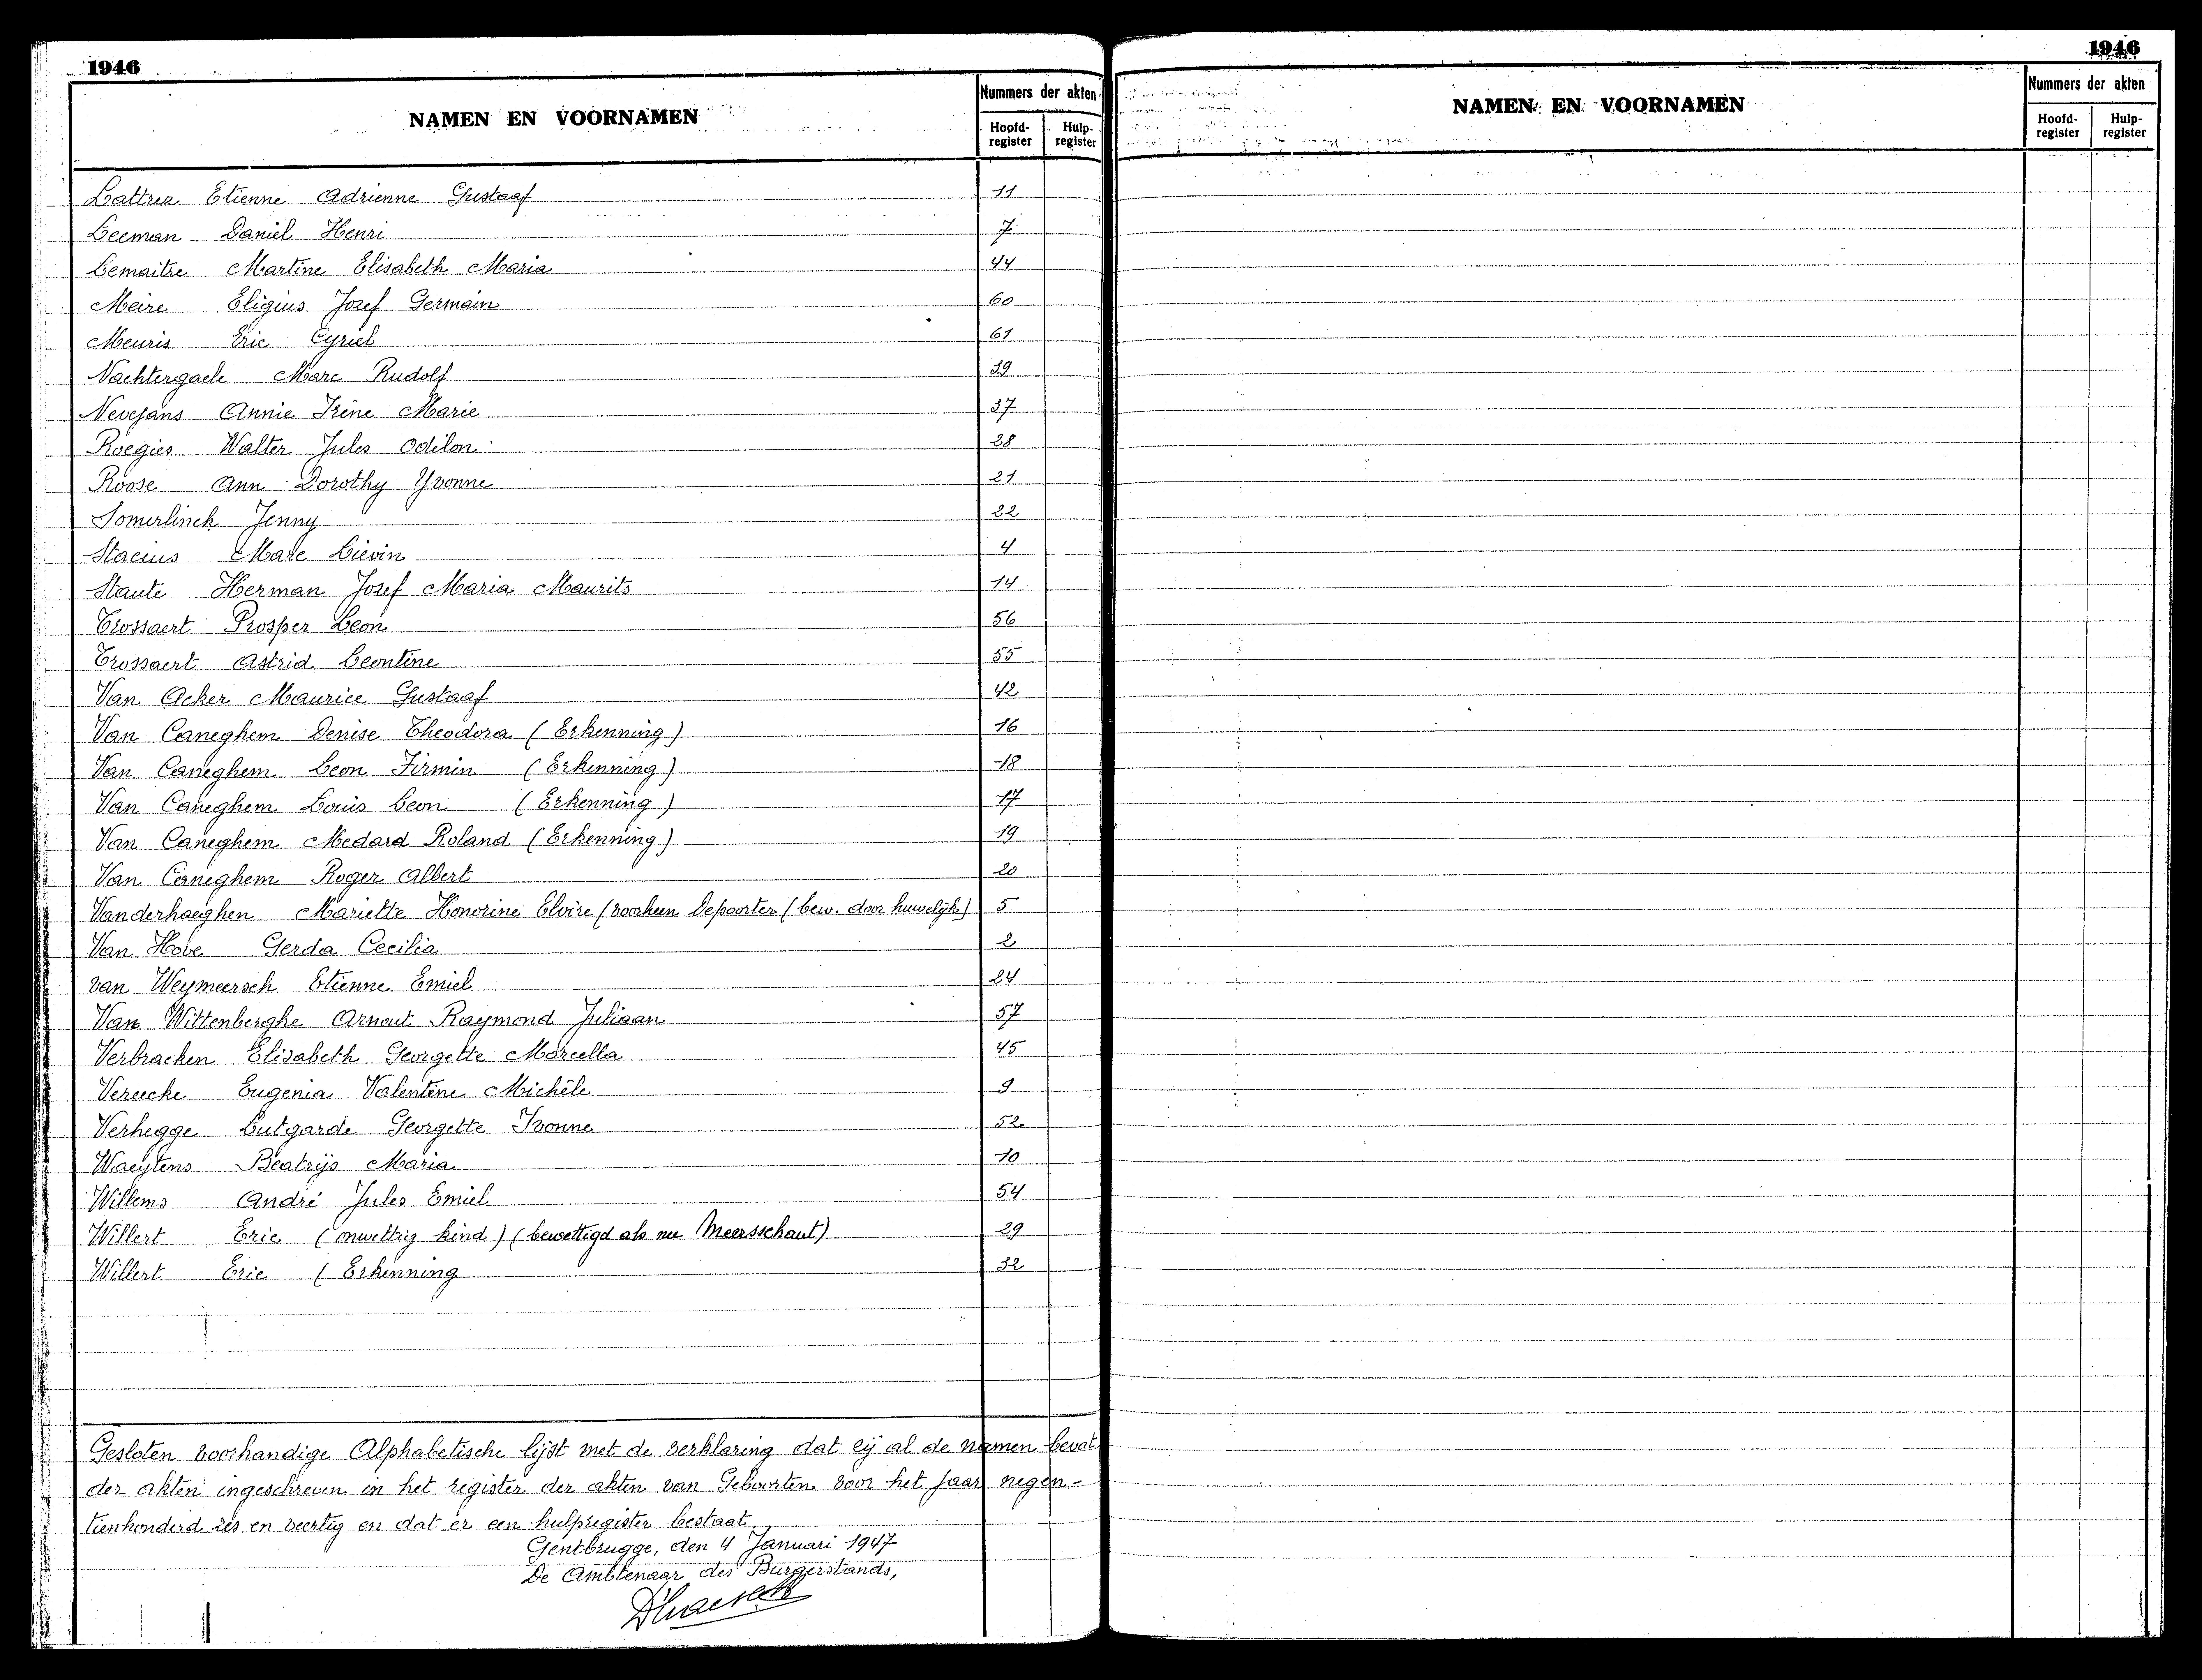 1946
NAMEN EN VOORNAMEN
Nummers der akten
Hoofd-register
Hulp-register
Lattrez Etienne Adrienne Gustaaf 11
Leeman Daniel Henri 7
Lemaitre Martine Elisabeth Maria 44
Meire Eligius Jozef Germain 60
Meuris Eric Cyriel 61
Nachtergaele Marc Rudolf 39
Nevejans Annie Irène Marie 37
Roegies Walter Jules Odilon 28
Roose Ann Dorothy Yvonne 21
Somerlinck Jenny 22
Stacius Marc Lievin 4
Staute Herman Jozef Maria Maurits 14
Trossaert Prosper Leon 56
Trossaert Astrid Leontine 55
Van Acker Maurice Gustaaf 42
Van Caneghem Denise Theodora (Erkenning) 16
Van Caneghem Leon Firmin (Erkenning) 18
Van Caneghem Louis Leon (Erkenning) 17
Van Caneghem Medard Roland (Erkenning) 19
Van Caneghem Roger Albert 20
Vanderhaeghen Mariette Honorine Elvire (voorheen Depoorter (bew. door huwelijk) 5
Van Hove Gerda Cecilia 2
van Weymeersch Etienne Emiel 24
Van Wittenberghe Arnout Raymond Juliaan 57
Verbracken Elisabeth Georgette Marcella 45
Vereecke Eugenia Valentine Michèle 9
Verhegge Lutgarde Georgette Ivonne 52
Waeytens Beatrijs Maria 10
Willems André Jules Emiel 54
Willert Eric (onwettig kind) (bewettigd als nu Meersschaut) 29
Willert Eric (Erkenning 32
Gesloten voorhandige Alphabetische lijst met de verklaring dat zij al de namen bevat
der akten ingeschreven in het register der akten van Geboorten voor het jaar negen-
tienhonderd zes en veertig en dat er een hulpregister bestaat.
Gentbrugge, den 4 Januari 1947
De Ambtenaar des Burgerstands,
1946
NAMEN EN VOORNAMEN
Nummers der akten
Hoofd-register
Hulp-register